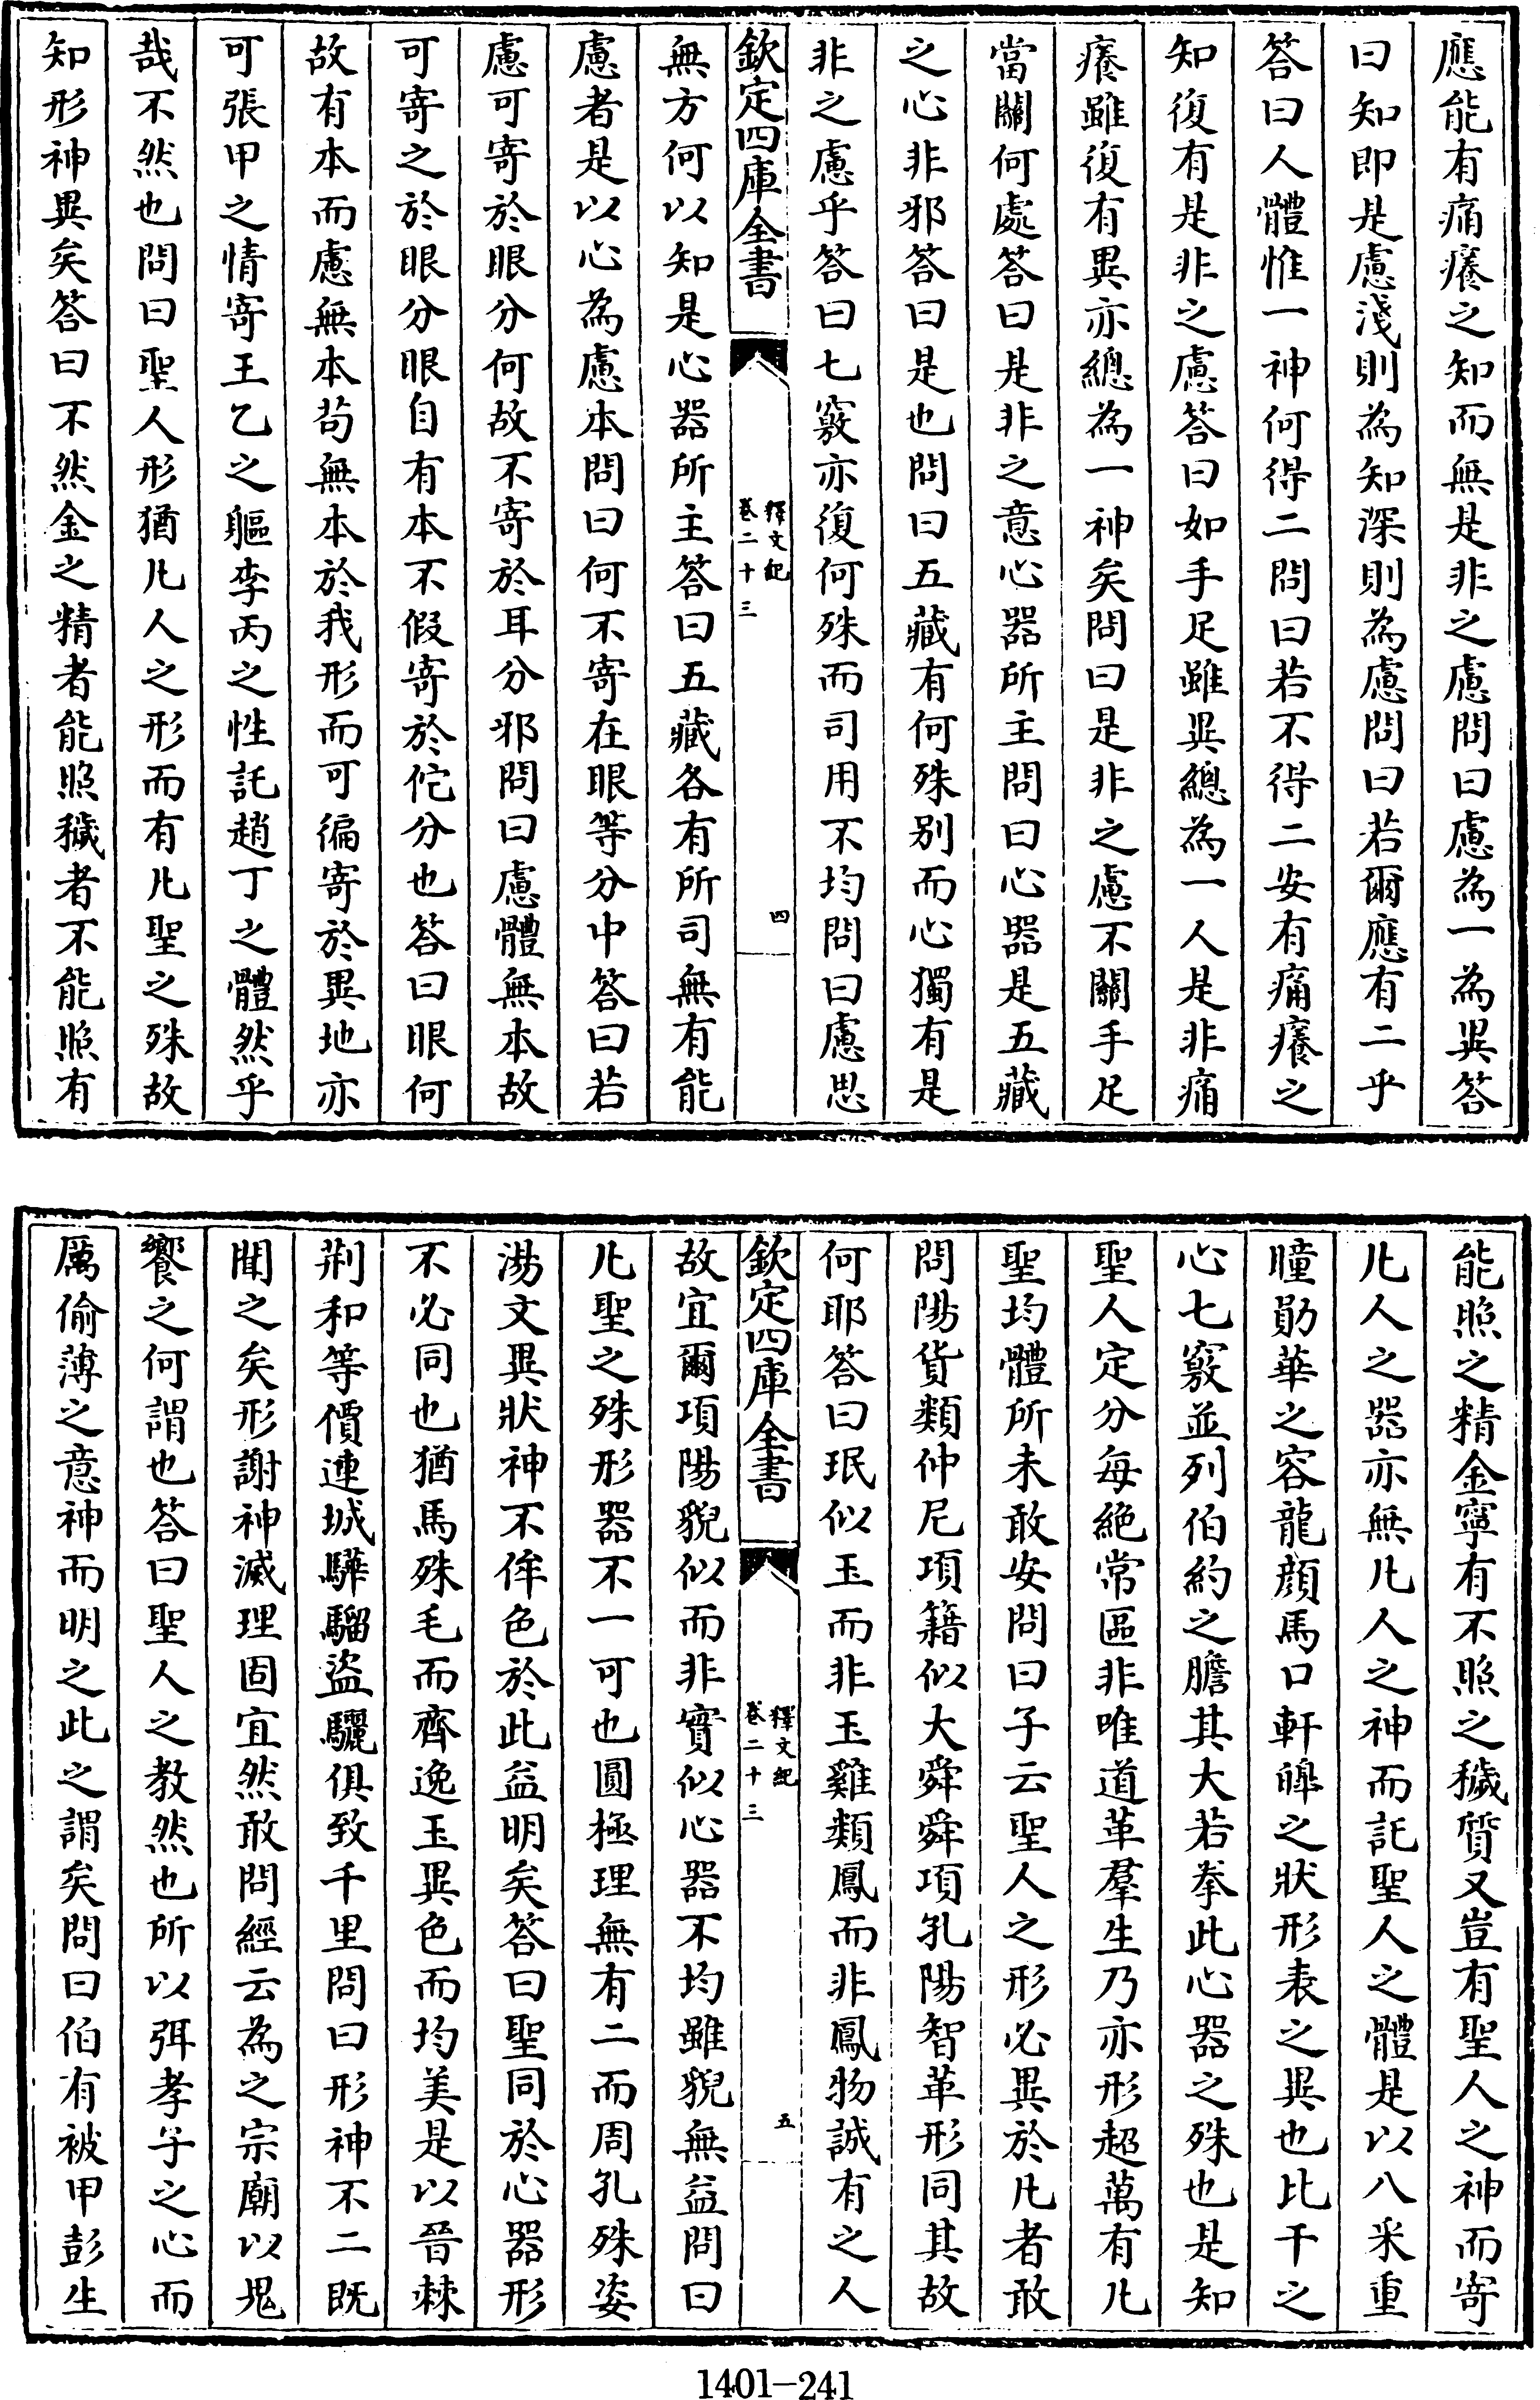 應能有痛癢之知而無是非之慮問曰慮為一為異答
曰知即是慮淺則為知深則為慮問曰若爾應有二乎
答曰人體惟一神何得二問曰若不得二安有痛癢之
知復有是非之慮答曰如手足雖異總為一人是非痛
癢雖復有異亦總為一神矣問曰是非之慮不關手足
當關何處答曰是非之意心器所主問曰心器是五藏
之心非邪答曰是也問曰五藏有何殊别而心獨有是
非之慮乎答曰七竅亦復何殊而司用不均問曰慮思
欽定四庫全書
釋文紀
卷二十三
四
無方何以知是心器所主答曰五藏各有所司無有能
慮者是以心為慮本問曰何不寄在眼等分中答曰若
慮可寄於眼分何故不寄於耳分邪問曰慮體無本故
可寄之於眼分眼自有本不假寄於佗分也答曰眼何
故有本而慮無本苟無本於我形而可徧寄於異地亦
可張甲之情寄王乙之軀李丙之性託趙丁之體然乎
哉不然也問曰聖人形猶凡人之形而有凡聖之殊故
知形神異矣答曰不然金之精者能照穢者不能照有
能照之精金寧有不照之穢質又豈有聖人之神而寄
凡人之器亦無凡人之神而託聖人之體是以八采重
瞳勛華之容龍顔馬口軒皡之狀形表之異也比干之
心七竅並列伯約之膽其大若拳此心器之殊也是知
聖人定分每絶常區非唯道革羣生乃亦形超萬有凡
聖均體所未敢安問曰子云聖人之形必異於凡者敢
問陽貨類仲尼項籍似大舜舜項孔陽智革形同其故
何耶答曰珉似玉而非玉雞類鳳而非鳳物誠有之人
欽定四庫全書
釋文紀
卷二十三
五
故宜爾項陽貌似而非實似心器不均雖貌無益問曰
凡聖之殊形器不一可也圓極理無有二而周孔殊姿
湯文異狀神不侔色於此益明矣答曰聖同於心器形
不必同也猶馬殊毛而齊逸玉異色而均美是以晉棘
荆和等價連城驊騮盜驪俱致千里問曰形神不二既
聞之矣形謝神滅理固宜然敢問經云為之宗廟以鬼
饗之何謂也答曰聖人之教然也所以弭孝子之心而
厲偷薄之意神而明之此之謂矣問曰伯有被甲彭生
1401-241